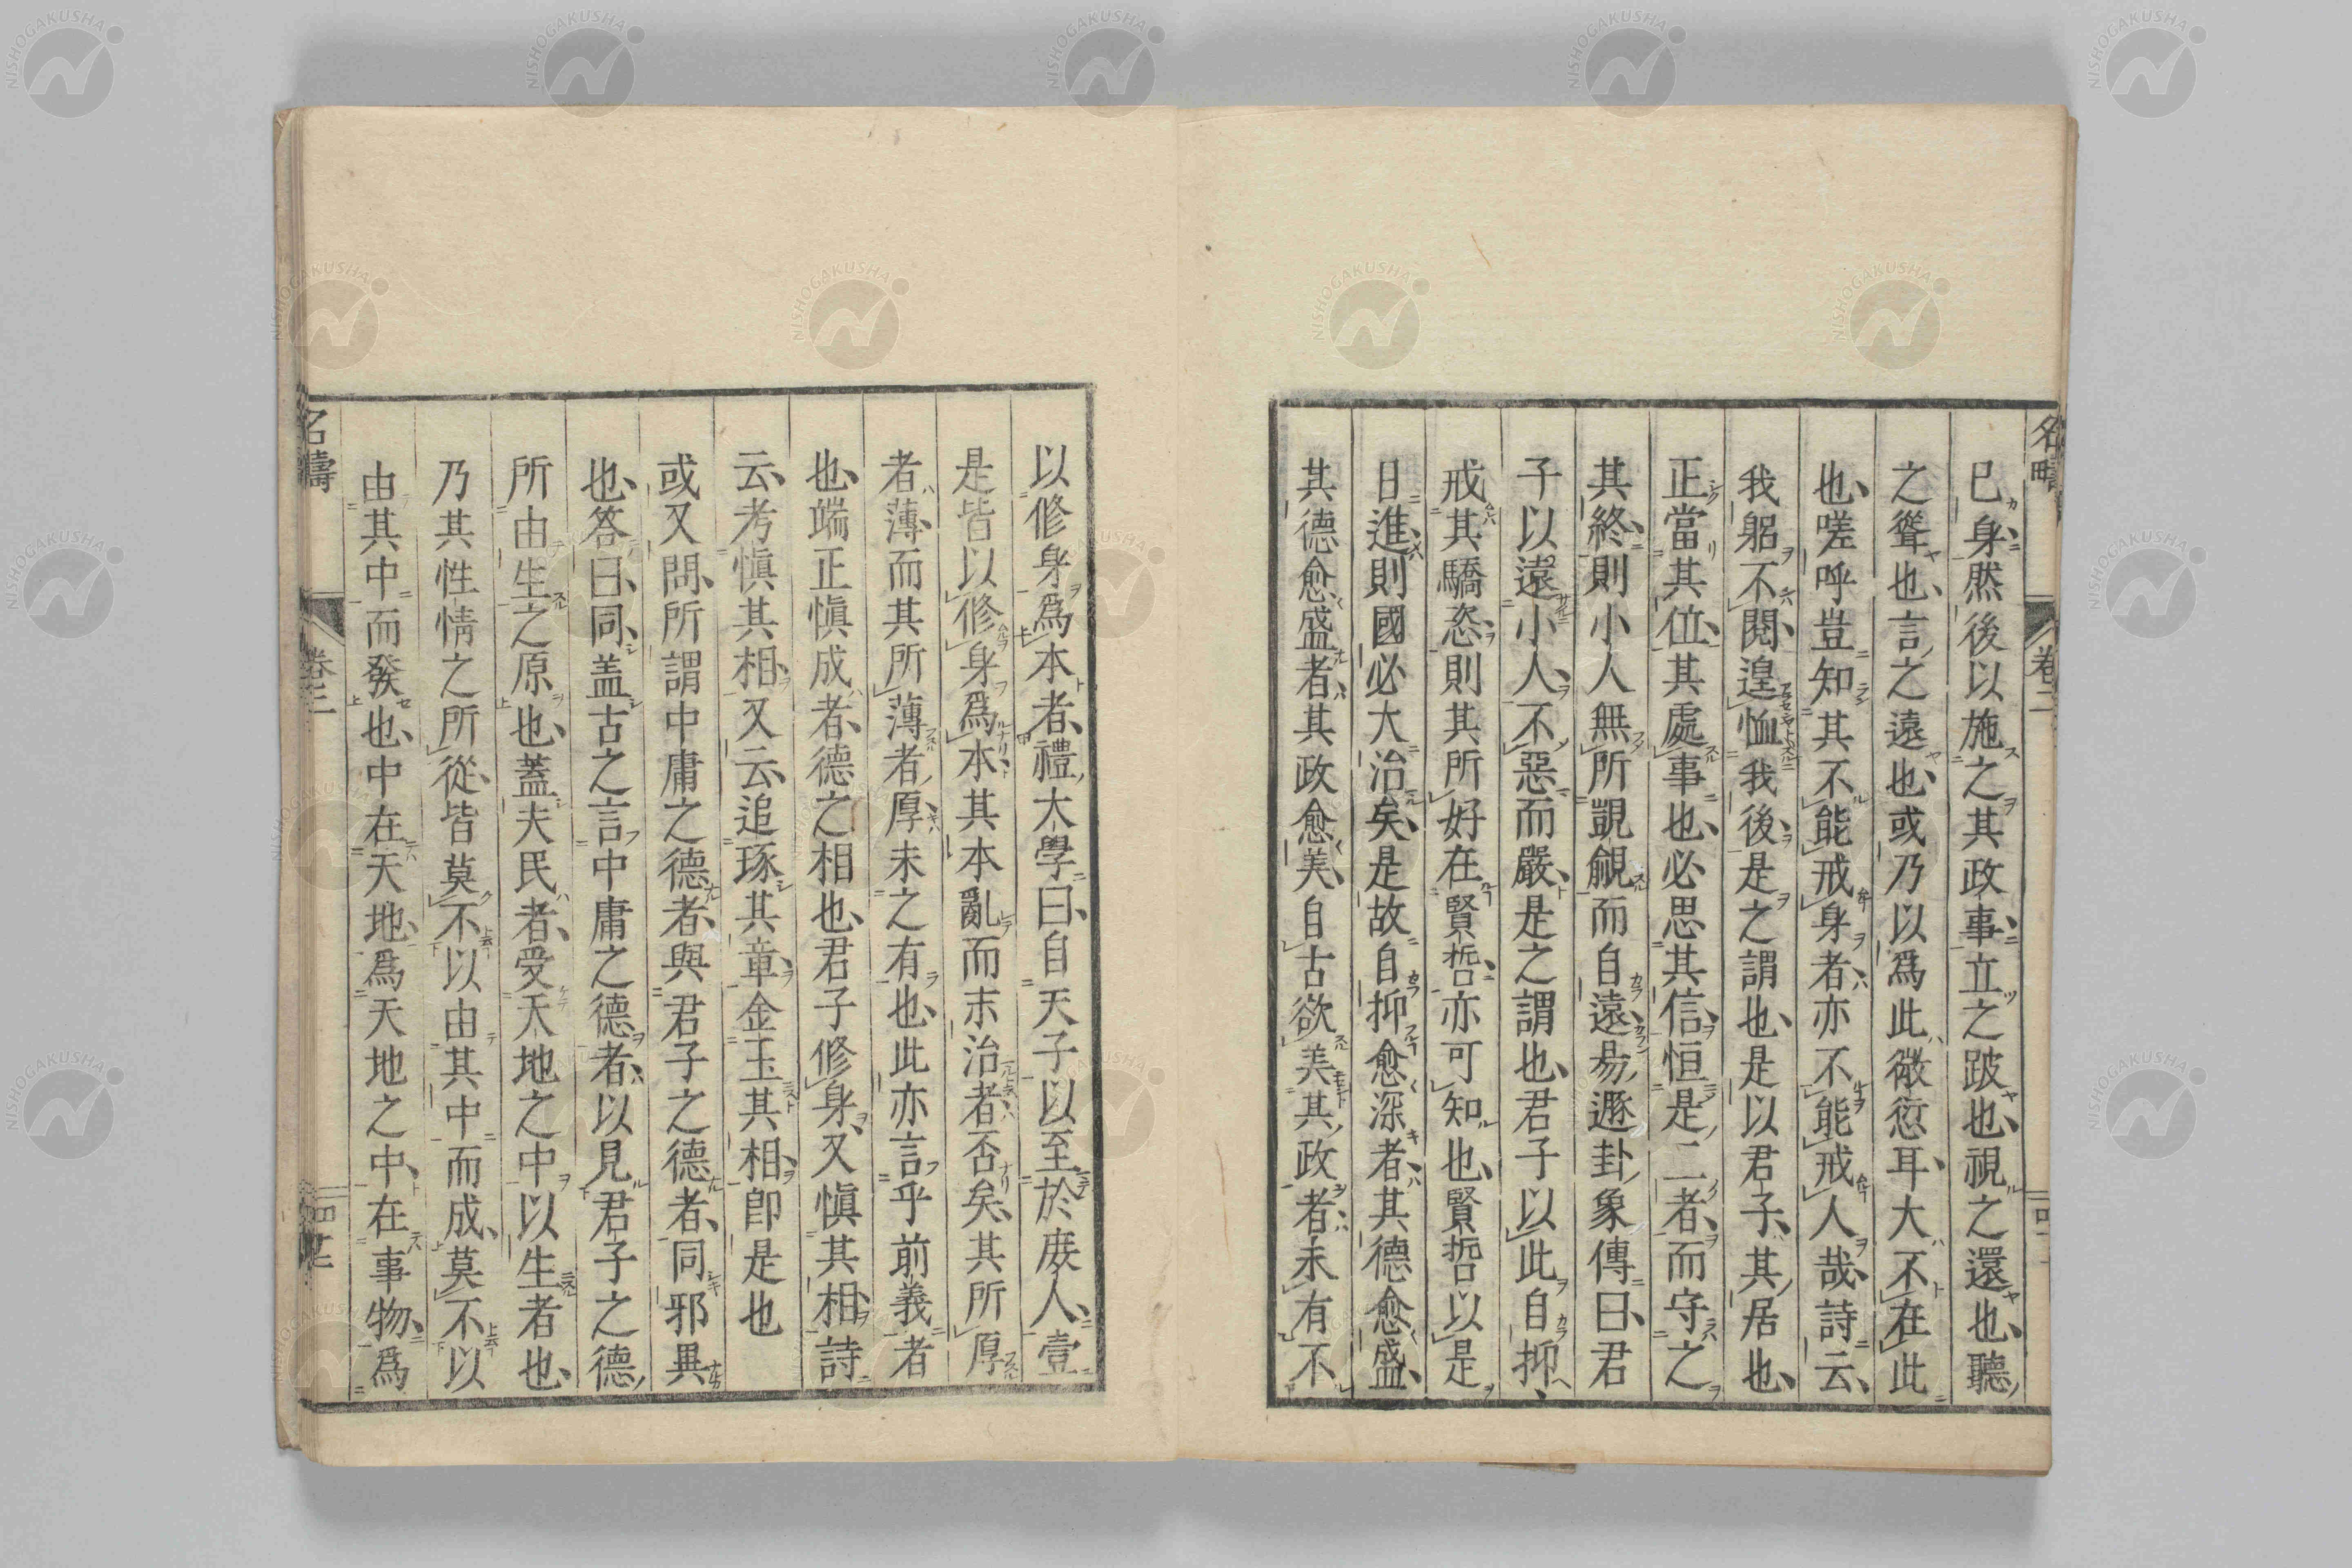 名疇
卷二
已身然後以施之其政事立之跛也視之還也聽
之聳也言之遠也或乃以爲此微愆耳大不在此
也嗟呼豈知其不能戒身者亦不能戒人哉詩云
我躬不閱遑恤我後是之謂也是以君子其居也
正當其位其處事也必思其信恒是二者而守之
其終則小人無所覬覦而自遠易遯卦象傳曰君
子以遠小人不惡而嚴是之謂也君子以此自抑
戒其驕恣則其所好在賢哲亦可知也賢哲以是
日進則國必大治矣是故自抑愈深者其德愈盛
其德愈盛者其政愈美自古欲美其政者未有不
以修身爲本者禮大學曰自天子以至於庶人壹
是皆以修身爲本其本亂而末治者否矣其所厚
者薄而其所薄者厚未之有也此亦言乎前義者
也端正愼成者德之相也君子修身又愼其相詩
云考愼其相又云追琢其章金玉其相卽是也
或又問所謂中庸之德者與君子之德者同邪異
也答曰同盖古之言中庸之德者以見君子之德
所由生之原也蓋夫民者受天地之中以生者也
乃其性情之所從皆莫不以由其中而成莫不以
由其中而發也中在天地爲天地之中在事物爲
名疇
卷二
NISHOGAKUSHA